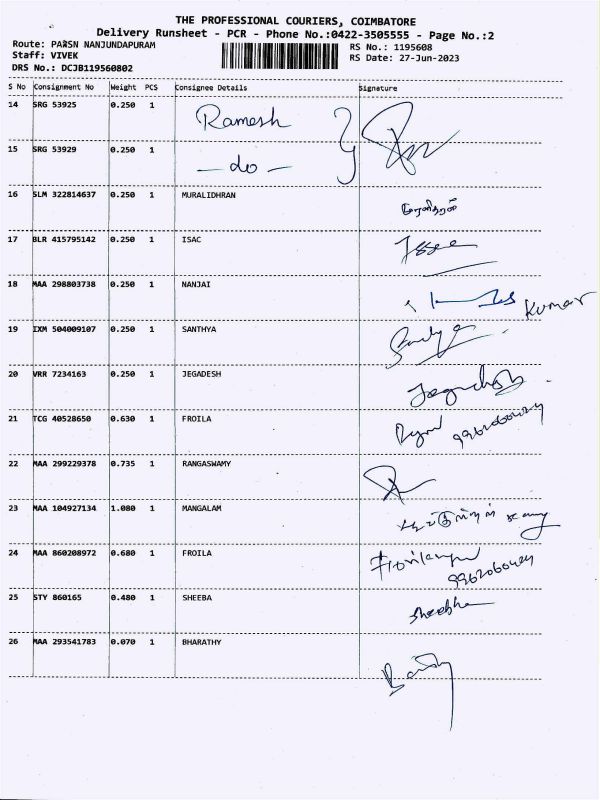 THE PROFESSIONAL COURIERS, COIMBATORE
Delivery Runsheet - PCR - Phone No.:0422-3505555 - Page No.:2
Route: PARSN NANJUNDAPURAM RS No.: 1195608
Staff: VIVEK RS Date: 27-Jun-2023
DRS No.: DCJB119560802
S No Consignment No Weight PCS Consignee Details Signature
14 SRG 53925 0.250 1 Ramesh
15 SRG 53929 0.250 1 — do —
16 SLM 322814637 0.250 1 MURALIDHRAN முரளிதரன்
17 BLR 415795142 0.250 1 ISAC
18 MAA 298803738 0.250 1 NANJAI Kumar
19 IXM 504009107 0.250 1 SANTHYA
20 VRR 7234163 0.250 1 JEGADESH
21 TCG 40528650 0.630 1 FROILA
22 MAA 299229378 0.735 1 RANGASWAMY
23 MAA 104927134 1.080 1 MANGALAM
24 MAA 860208972 0.680 1 FROILA
25 STY 860165 0.480 1 SHEEBA Sheebha
26 MAA 293541783 0.070 1 BHARATHY